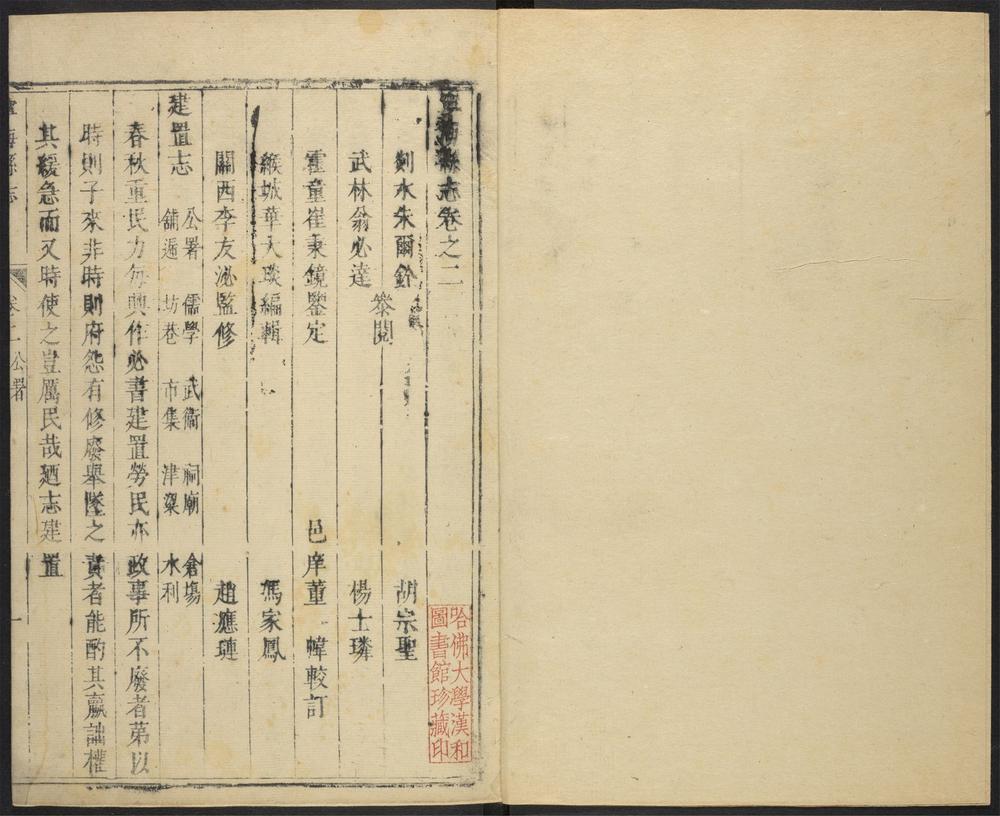 寧海縣志卷之二
剡水朱爾銓
叅閱
武林翁必達
霍童崔秉鏡鑒定
緱城華大琰編輯
關西李友泌監修
胡宗聖
楊士璘
邑庠董 幃較訂
馮家鳳
趙應璉
建置志
公署 儒學 武衞 祠廟 倉塲
舖遞 坊巷 市集 津梁 水利
春秋重民力每興作必書建置勞民亦政事所不廢者苐以
時則子來非時則府怨有修廢舉墜之責者能酌其贏詘權
其緩急而又時使之豈厲民哉廼志建置
寧海縣志
卷二公署
一
哈佛大學漢和
圖書館珍藏印